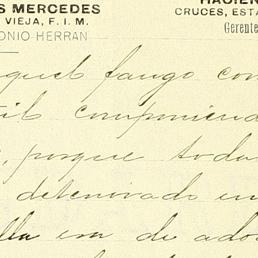 S MERCEDES
VIEJA, F. I. M.
ONIO HERRAN
HACIEN
CRUCES, ESTA
Gerente
quel fango con
til componiend
, porque toda
deteriorado en
lla era de ado